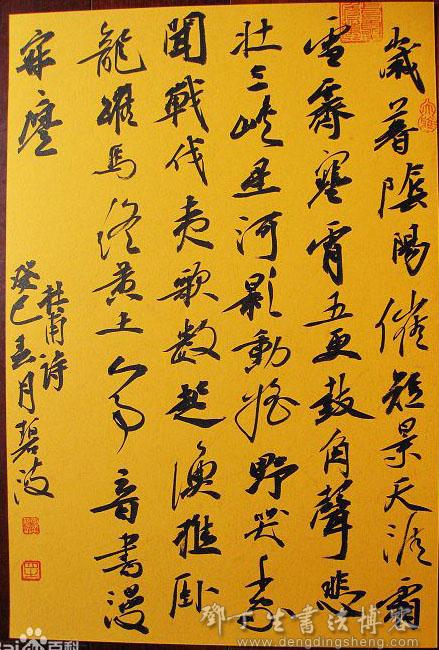 歲暮陰陽催短景天涯霜
雪霽寒宵五更鼓角聲悲
壮三峽星河影動摇野哭千家
聞戰伐夷歌數起漁樵卧
龍躍馬終黄土人事音書漫
寂寥
杜甫詩
癸巳春月碧波
鄧丁生書法博客
www.dengdingsheng.com
百科